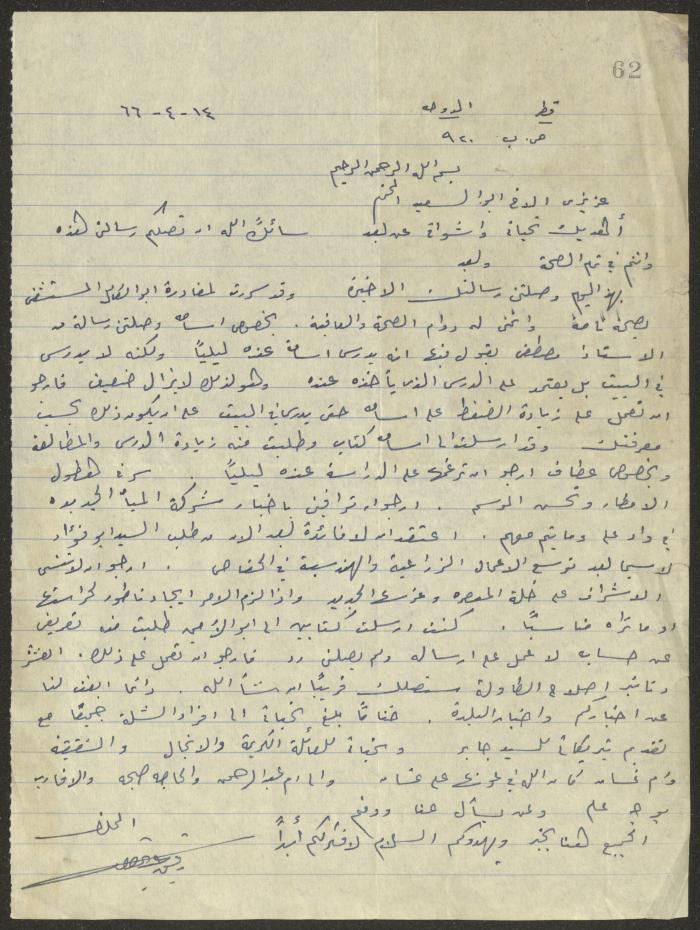 62
قطر الدوحه ١٤-٤-٦٦
ص. ب ٩٢٠
بسم الله الرحمن الرحيم
عزيزي الاخ ابو السعيد المحترم
أهديك تحياتي واشواقي وبعد سائلاً الله ان تصلكم رسالتي هذه
وانتم في تمام الصحة وبعد
بهذا اليوم وصلتني رسالتك الاخيرة وقد سررت لمغادرة ابو الكامل المستشفى
بصحة تامة واتمنى له دوام الصحة والعافية. بخصوص اسامه وصلتني رسالة من
الاستاذ مصطفى يقول فيها انه يدرس اسامة عنده ليلياً ولكنه لا يدرس
في البيت بل يعتمد على الدرس الذي يأخذه عنده وهو لذلك لا يزال ضعيف فارجو
ان تعمل على زيادة الضغط على اسامه حتى يدرس في البيت على ان يكون ذلك بحسب
معرفتك وقد ارسلت الى اسامه كتاب وطلبت منه زيادة الدرس والمطالعة
وبخصوص عطاف ارجو ان ترغمها على الدراسة عنده ليلياً. سرني هطول
الامطار وتحسن الموسم. ارجو ان توافيني باخبار شركة المياه الجديده
في واد علي وما يتم معهم. اعتقد ان لا فائدة لبعد الان من طلب السيد ابو فؤاد
لاسيما بعد توسع الاعمال الزراعية والهندسية في الخفاص. ارجو ان لا تنسى
الاشراف على خلة المعصره وغرسها الجديد واذا لزم الامر ايجاد ناطور لحراستها
او ما تراه مناسباً. كنت ارسلت كتابين الى ابو الامين طلبت منه تعريفي
عن حسابه لاعمل على ارساله ولم يصلني رد فارجو ان تعمل على ذلك.
اصلاح الطاولة ستصلك قريباً ان شاء الله. دائما ابعث لنا
عن اخباركم واخبار البلدة. ختاماً بلغ تحياتي الى افراد الشلة جميعاً مع
تقديم تبريكاتي للسيد جابر وتحياتي للعائلة الكريمة والانجال والشقيقة
وام غسان كان الله في عونها على غسان والى ام عبد الرحمن والحاجه صبحه والاقارب
علي ولمن يسأل عنا ودمتم
الجميع هنا بخير ويهدوكم السلام لافتراكم أبداً المخلص